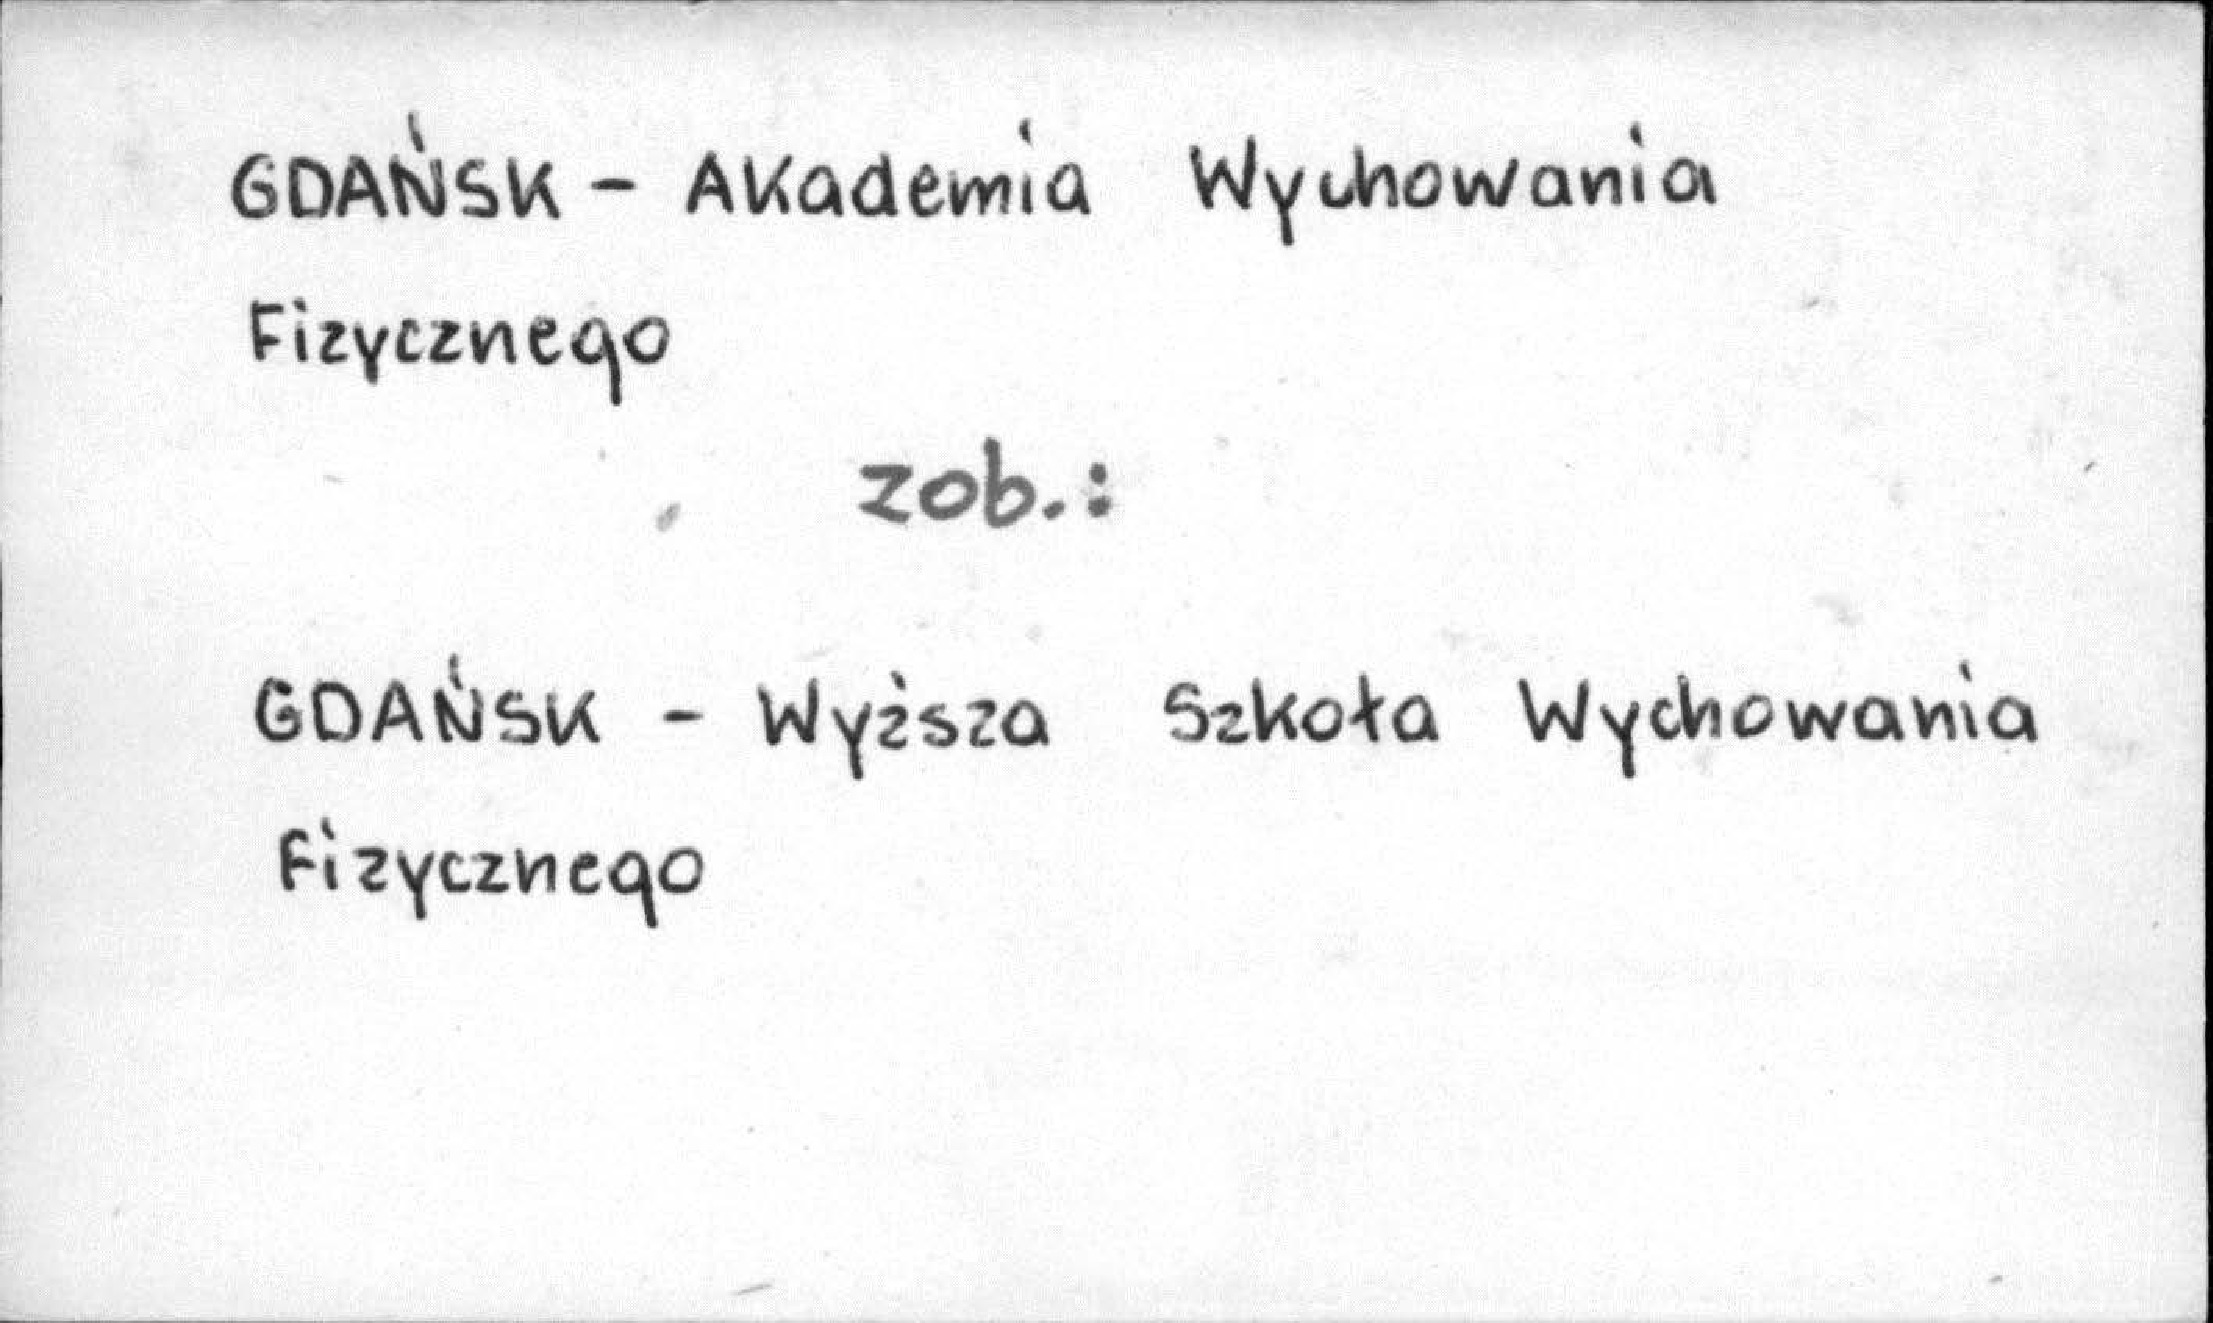 GDAŃSK - Akademia Wychowania
Fizycznego
zob.:
GDAŃSK - Wyższa Szkoła Wychowania
Fizycznego